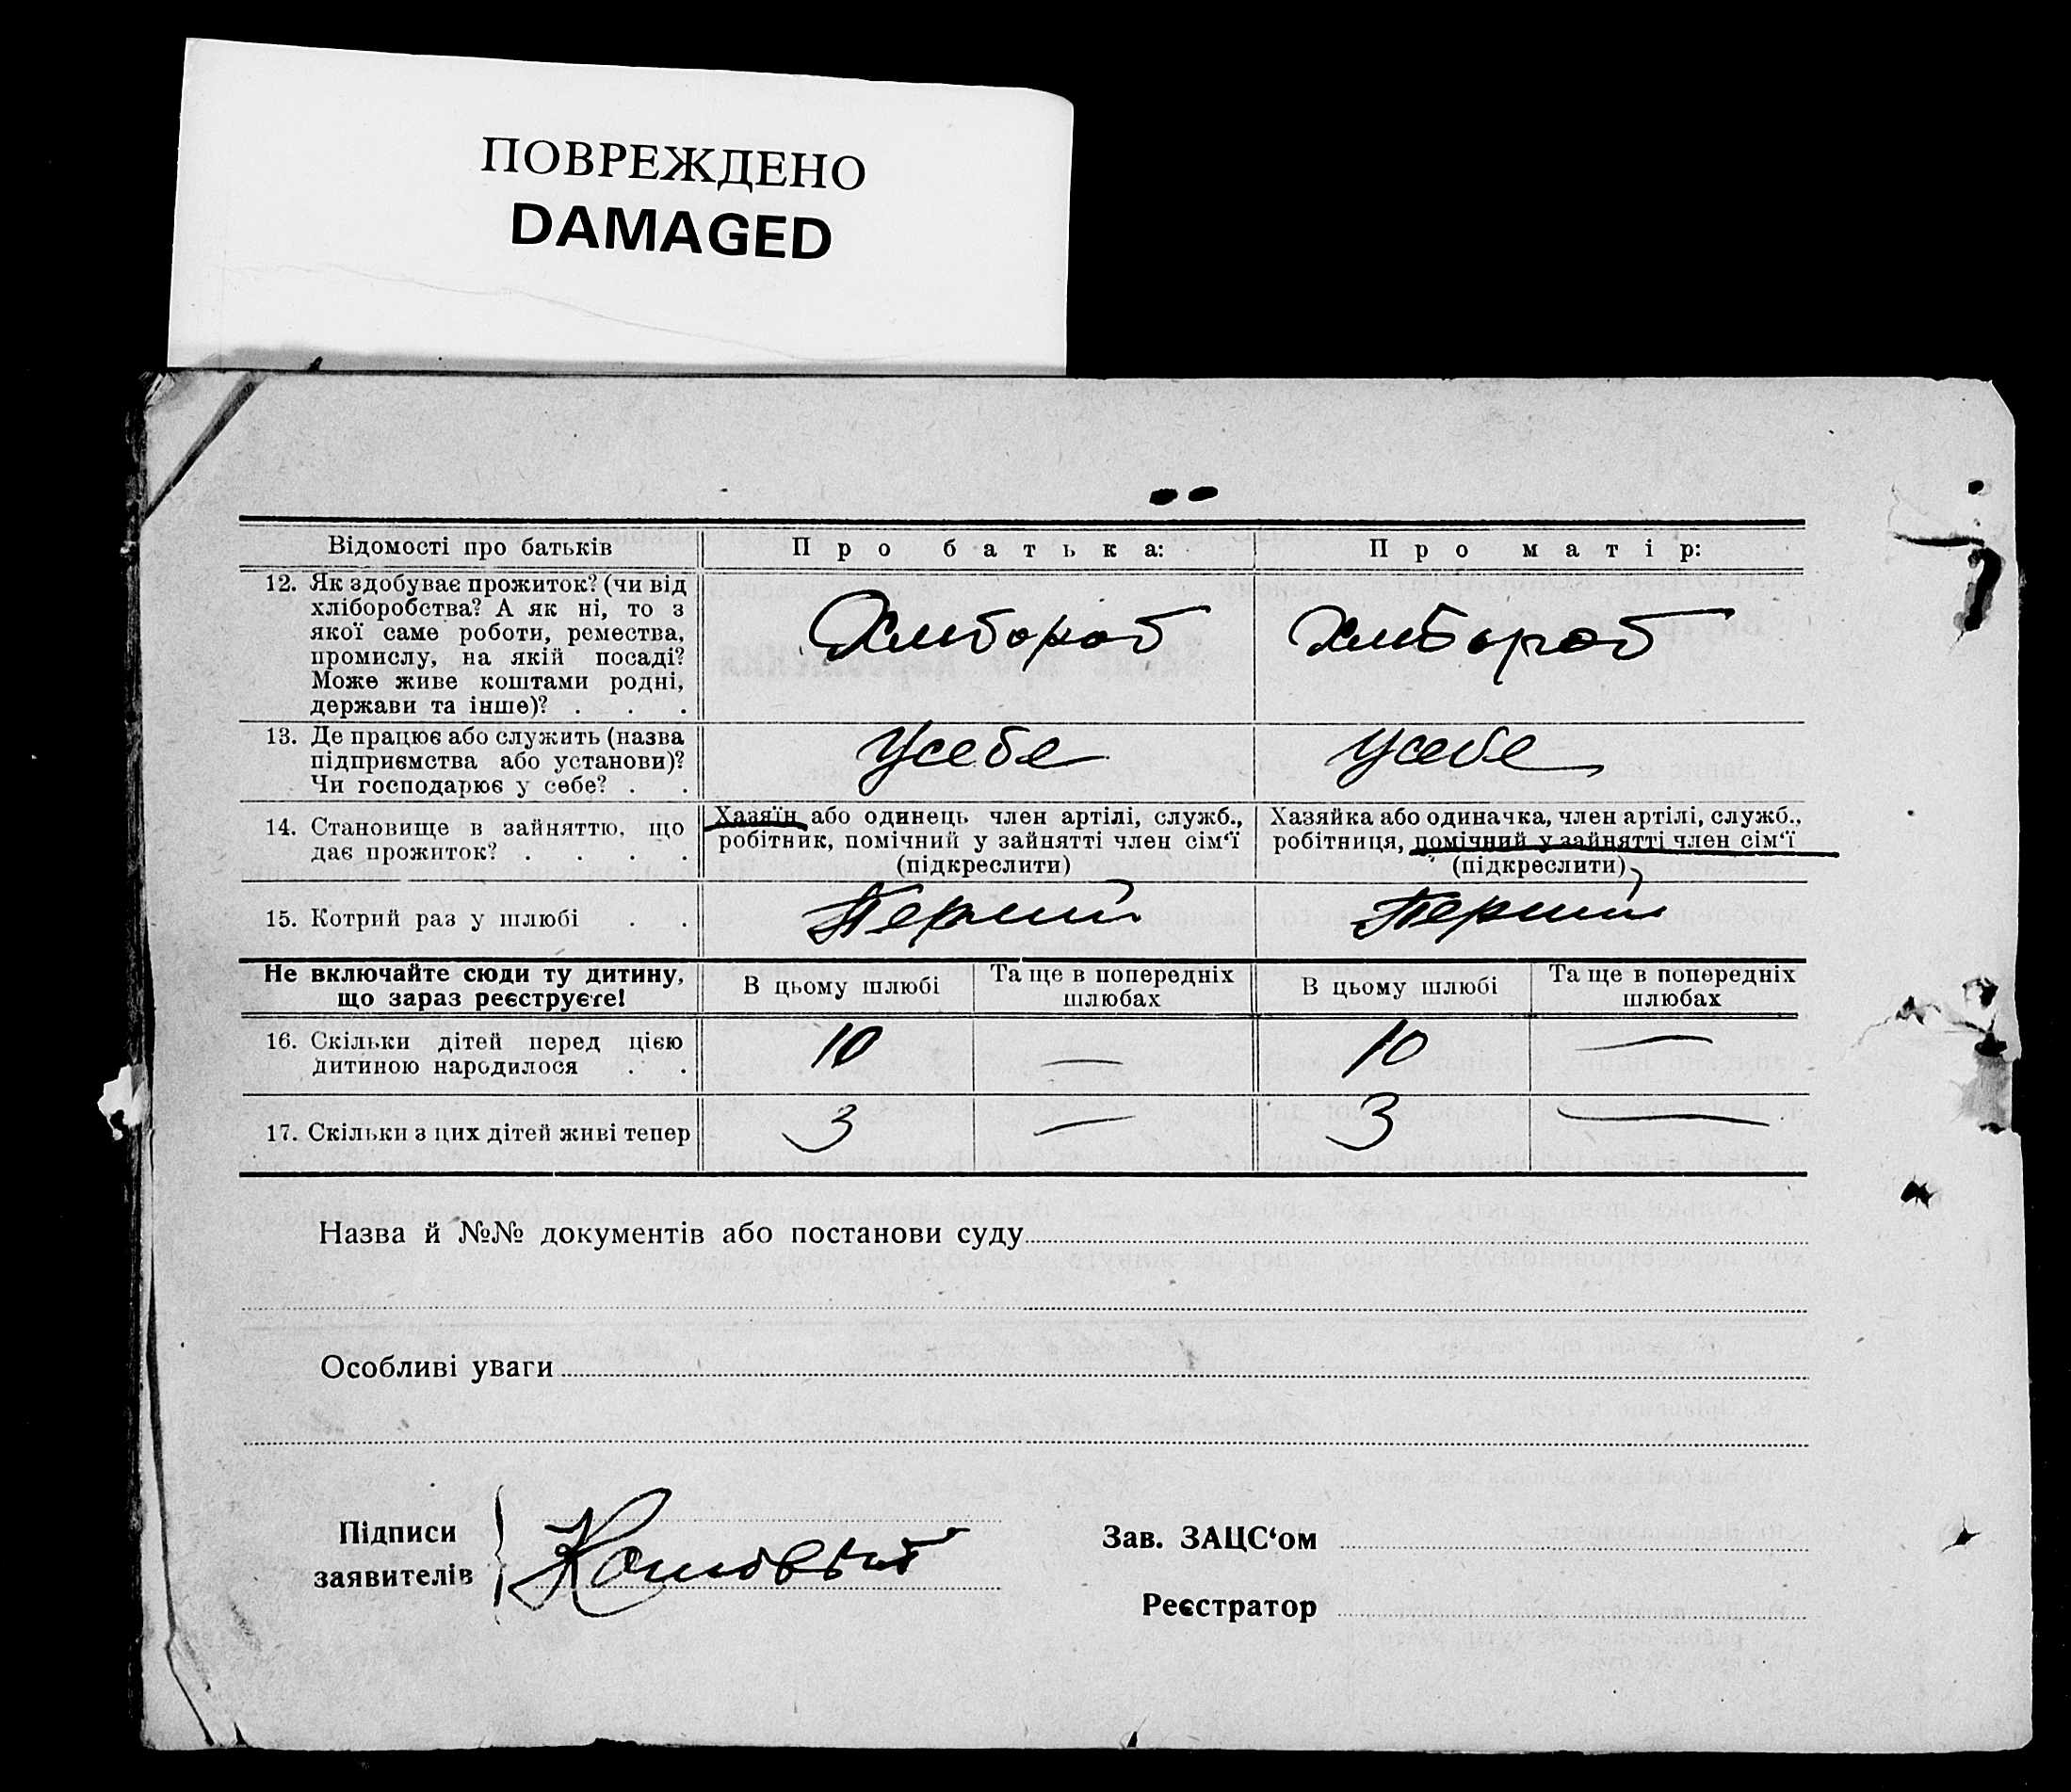 ПОВРЕЖДЕНО
DAMAGED
Відомості про батьків
Про батька:
Про матір:
12. Як здобуває прожиток? (чи від
хліборобства? А як ні, то з
якої саме роботи, ремества,
промислу, на якій посаді?
Може живе коштами родні,
держави та інше)? . . .
Хлибороб
Хлибороб
13. Де працює або служить (назва
підприємства або установи)?
Чи господарює у себе? . .
Усебе
Усебе
14. Становище в зайняттю, що
дає прожиток? . . . .
Хазяїн або одинець член артілі, служб.,
робітник, помічний у зайнятті член сім'ї
(підкреслити)
Хазяйка або одиначка, член артілі, служб.,
робітниця, помічний у зайнятті член сім'ї
(підкреслити)
15. Котрий раз у шлюбі . .
Перший
Перший
Не включайте сюди ту дитину,
що зараз реєструєте!
В цьому шлюбі
Та ще в попередніх
шлюбах
В цьому шлюбі
Та ще в попередніх
шлюбах
16. Скільки дітей перед цією
дитиною народилося . .
10 — 10 —
17. Скільки з цих дітей живі тепер
3 — 3 —
Назва й №№ документів або постанови суду
Особливі уваги
Підписи
заявителів
Зав. ЗАЦС'ом
Реєстратор